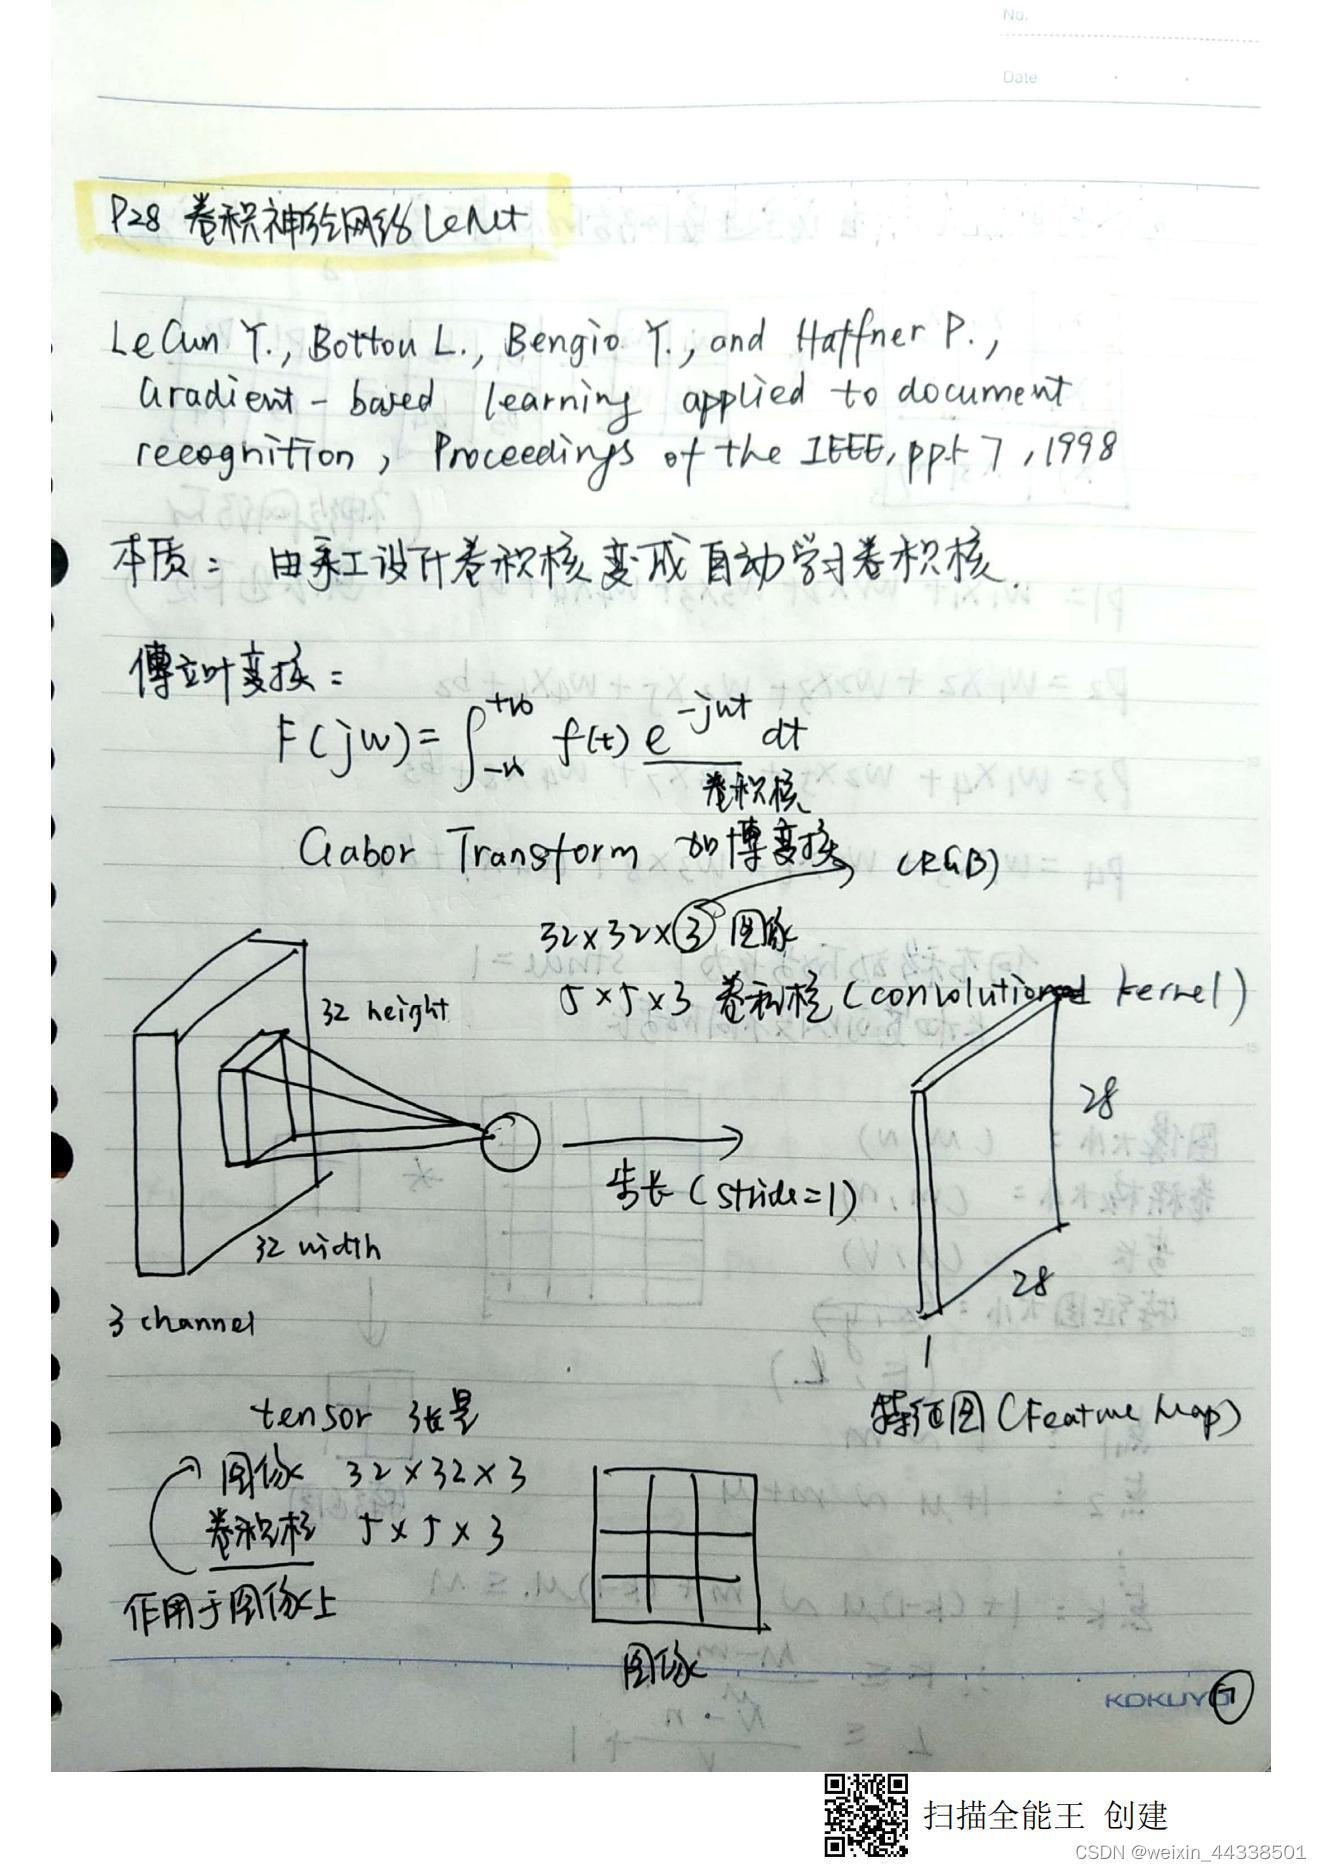 No.
Date
P28 卷积神经网络 LeNet
LeCun Y., Bottou L., Bengio Y., and Haffner P.,
Gradient-based learning applied to document
recognition, Proceedings of the IEEE, pp1-7, 1998
本质: 由手工设计卷积核变成自动学习卷积核.
傅立叶变换:
F(jw)=∫_{-∞}^{+∞} f(t) e^{-jwt} dt
卷积核
Gabor Transform 加博变换
(RGB)
32×32×3 图像
5×5×3 卷积核 (convolutional kernel)
32 height
28
步长 (stride=1)
32 width
28
3 channel
1
特征图 (Feature Map)
tensor 张量
图像 32×32×3
卷积核 5×5×3
作用于图像上
图像
KOKUYO
7
扫描全能王 创建
CSDN @weixin_44338501